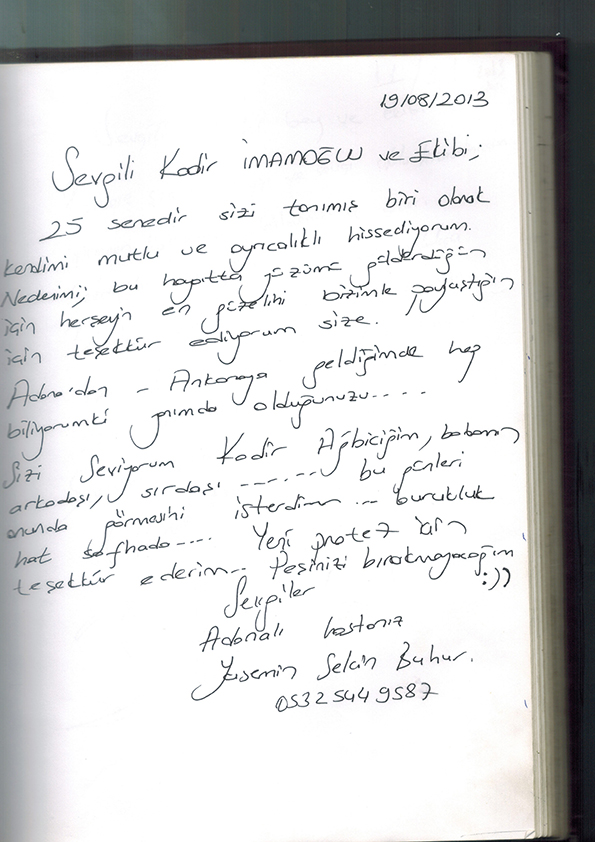 19/08/2013
Sevgili Kadir İMAMOĞLU ve Ekibi;
25 senedir sizi tanımış biri olarak
kendimi mutlu ve ayrıcalıklı hissediyorum.
Nedenimi; bu hayatta yüzümü güldürdüğün
için herşeyin en güzelini bizimle paylaştığın
için teşekkür ediyorum size.
Adana'dan - Ankaraya geldiğimde hep
biliyorumki yanımda olduğunuzu.....
Sizi Seviyorum Kadir Ağbiciğim, babamın
arkadaşı, sırdaşı ....... bu günleri
onunda görmesini isterdim ... burukluk
hat safhada.... Yeni protez için
teşekkür ederim.. Peşinizi bırakmayacağım
:))
Sevgiler
Adanalı hastanız
Yasemin Selcin Buhur.
0532 544 9587